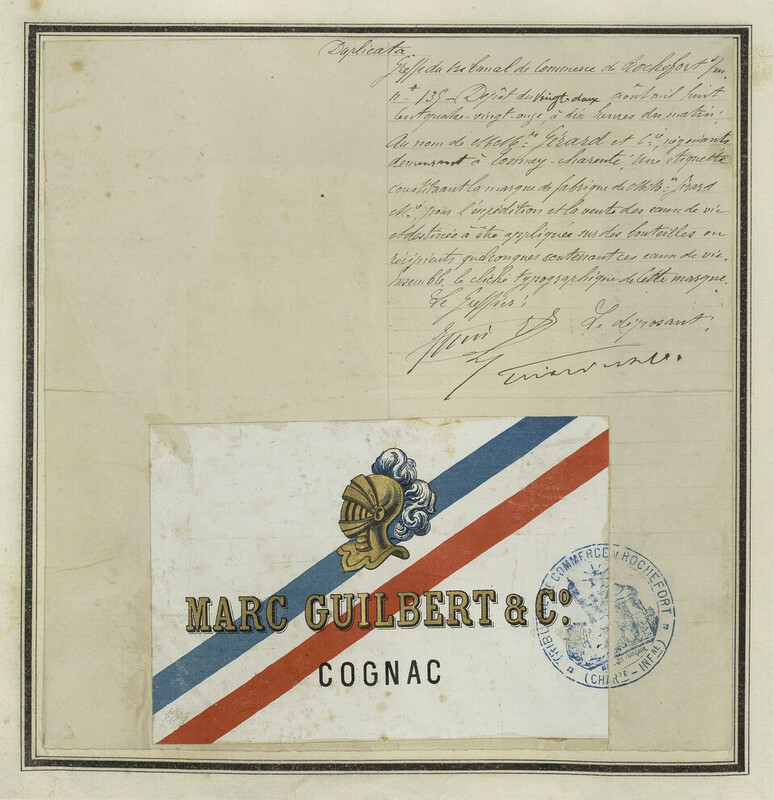 Duplicata
Greffe du tribunal de commerce de Rochefort s/mer
n° 135 - Dépôt du vingt-deux août mil huit
cent quatre-vingt-onze, à dix heures du matin,
Au nom de MM.rs Gérard et C.ie, négociants
demeurant à Tonnay-Charente, Une étiquette
constituant la marque de fabrique de MM.rs Gérard
& C.ie, pour l'expédition et la vente des eaux de vie
et destinée à être appliquée sur des bouteilles ou
récipients quelconques contenant ces eaux de vie.
Ensemble, le cliché typographique de cette marque.
Le Greffier, Le déposant,
MARC GUILBERT & Cº.
COGNAC
TRIBUNAL DE COMMERCE DE ROCHEFORT
(CHARTE - INFRE)